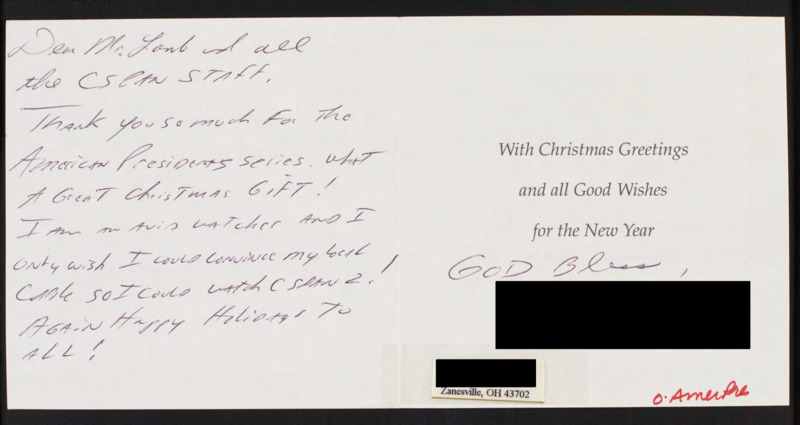 Dear Mr. Lamb and all
the CSPAN STAFF.
Thank you so much For The
American Presidents series. What
A Great Christmas GIFT!
I am an avid watcher AND I
Only wish I could convince my local
Cable so I could watch C SPAN 2.!
AGAIN Happy Holidays To
ALL!
With Christmas Greetings
and all Good Wishes
for the New Year
GOD Bless,
Zanesville, OH 43702
O. AmerPre